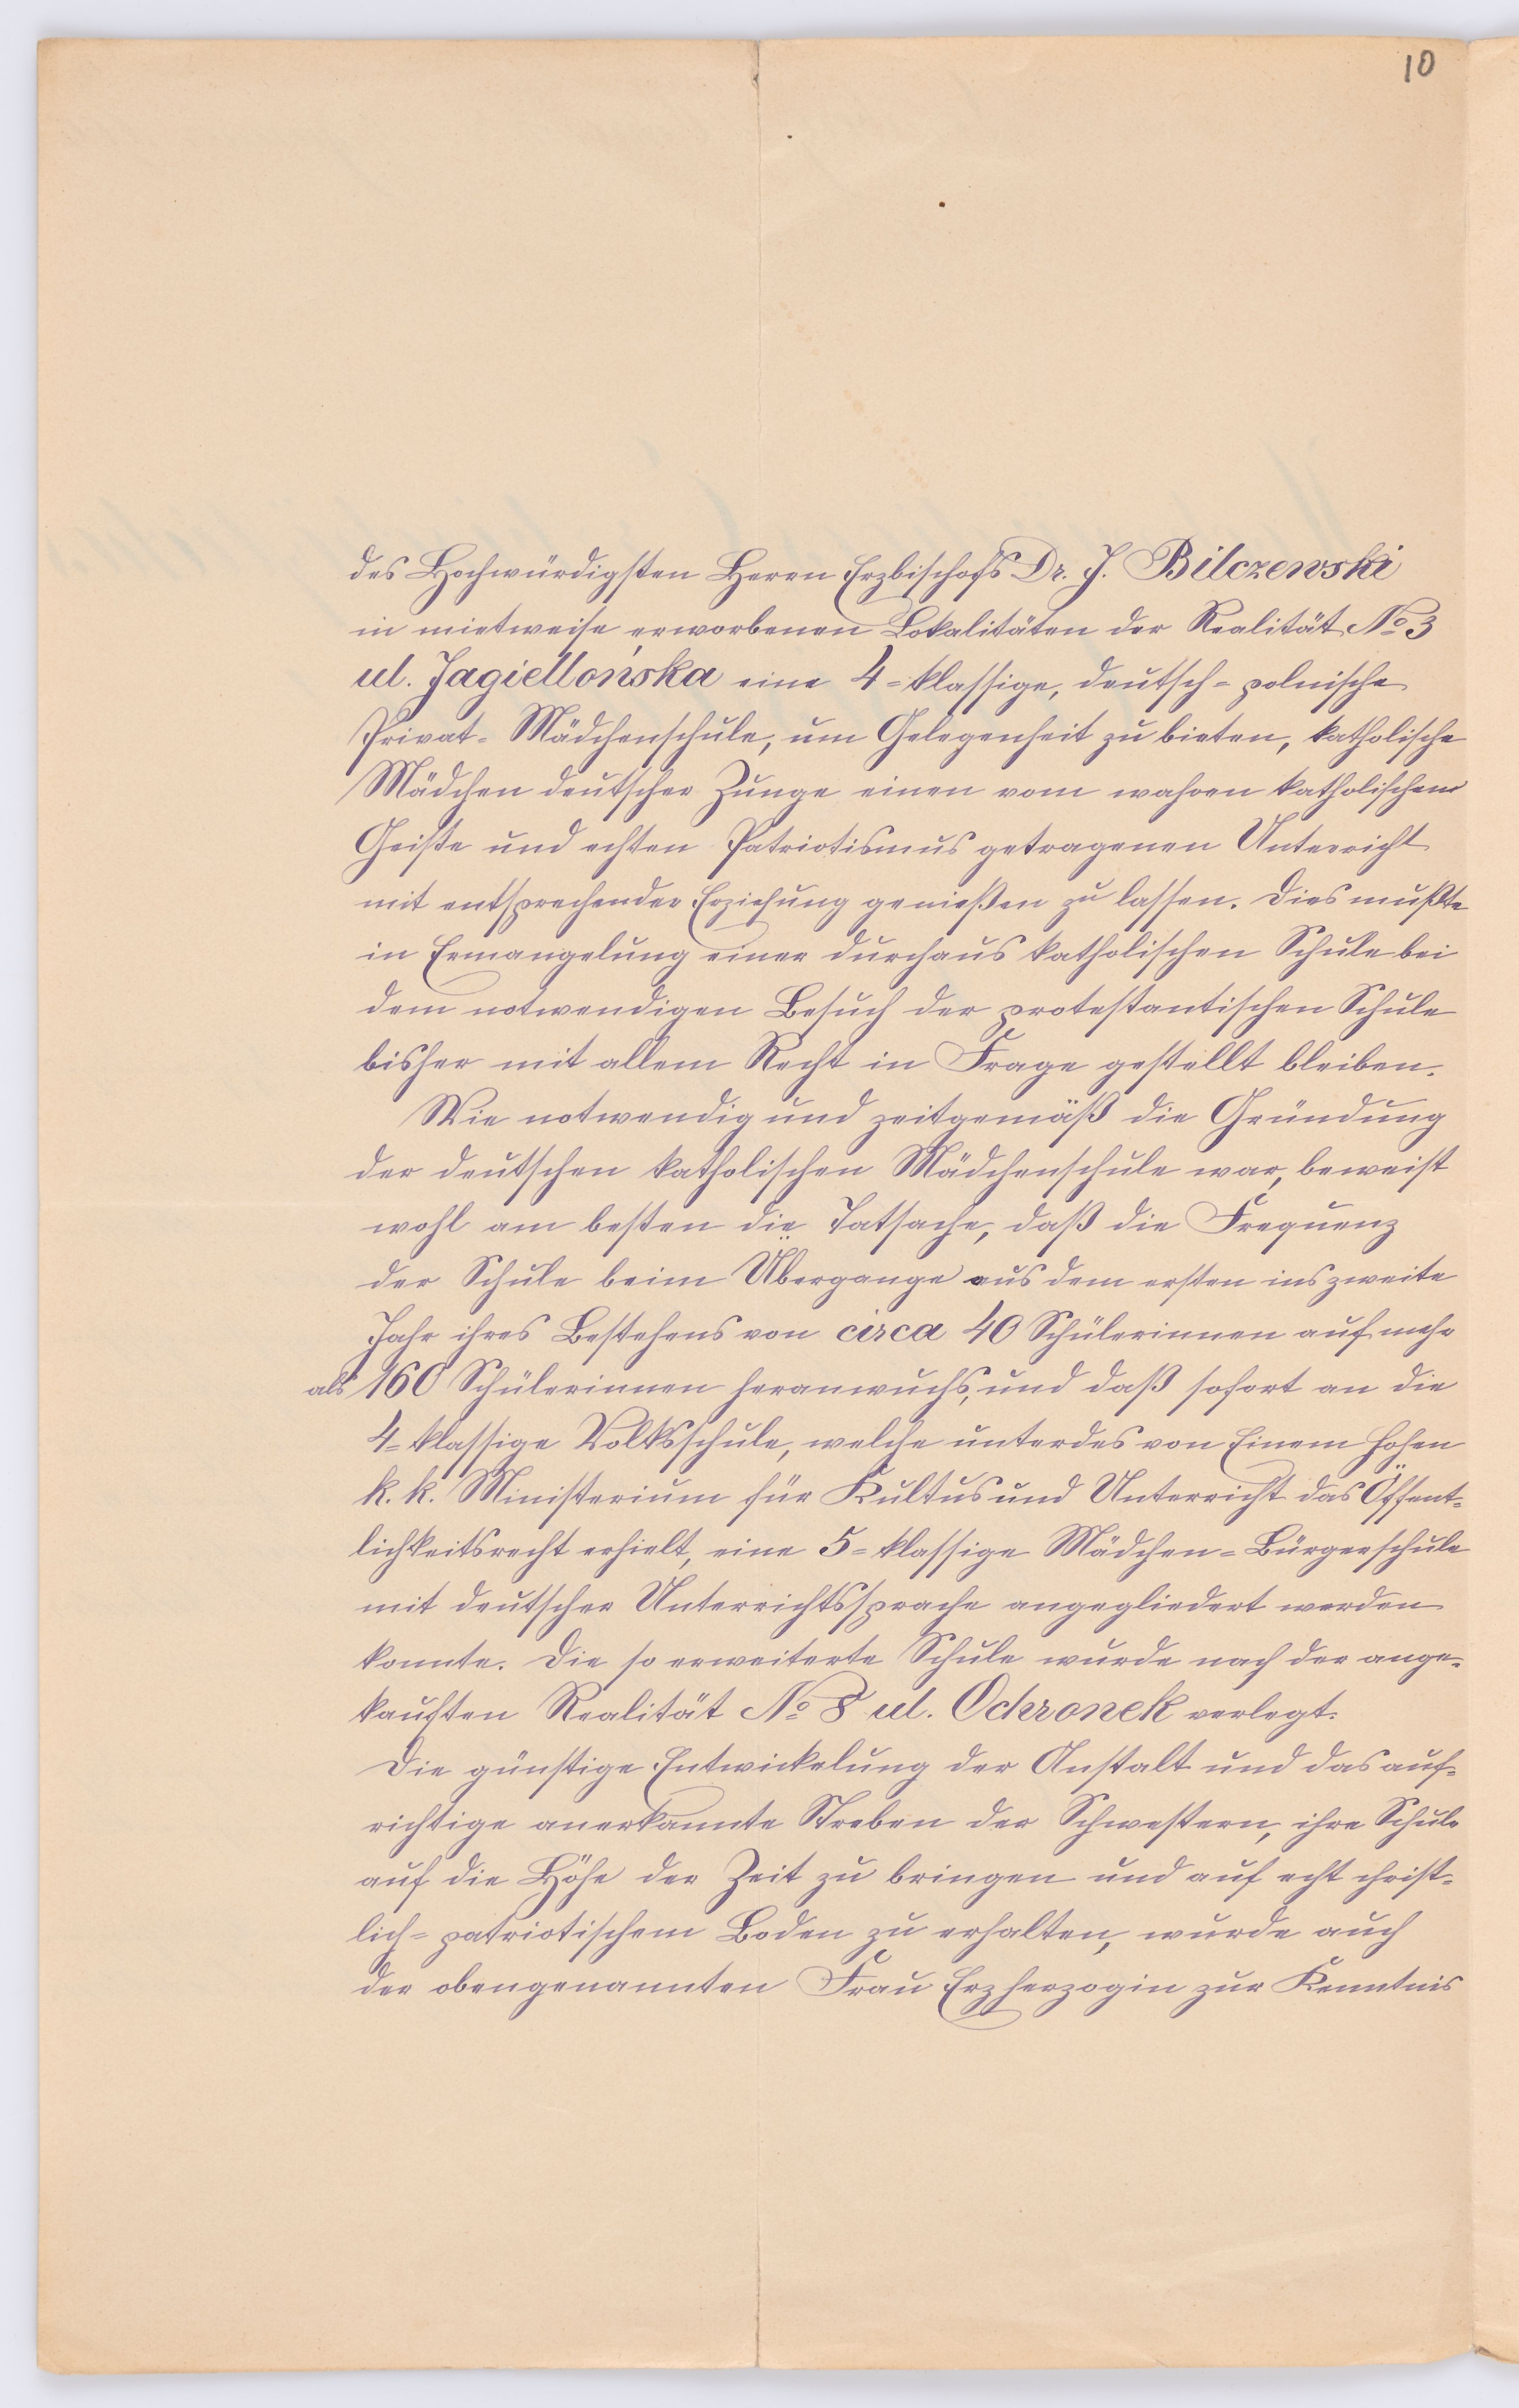 10
des Hochwürdigsten Herrn Erzbischofs Dr. J. Bilczewski
in mietweise erworbenen Lokalitäten der Realität No 3
ul. Jagiellońska eine 4=klassige, deutsch=polnische
Privat=Mädchenschule, um Gelegenheit zu bieten, katholische
Mädchen deutscher Zunge einen vom wahren katholischem
Geiste und echten Patriotismus getragenen Unterricht
mit entsprechender Erziehung genießen zu lassen. Dies mußte
in Ermangelung einer durchaus katholischen Schule bei
dem notwendigen Besuch der protestantischen Schule
bisher mit allem Recht in Frage gestellt bleiben.
Wie notwendig und zeitgemäß die Gründung
der deutschen katholischen Mädchenschule war, beweist
wohl am besten die Tatsache, daß die Frequenz
der Schule beim Übergange aus dem ersten ins zweite
Jahr ihres Bestehens von circa 40 Schülerinnen auf mehr
als 160 Schülerinnen heranwuchs, und daß sofort an die
4=klassige Volksschule, welche unterdes von Einem hohen
k. k. Ministerium für Kultus und Unterricht das Öffent=
lichkeitsrecht erhielt, eine 5=klassige Mädchen=Bürgerschule
mit deutscher Unterrichtssprache angegliedert werden
konnte. Die so erweiterte Schule wurde nach der ange=
kauften Realität No 8 ul. Ochronek verlegt.
Die günstige Entwickelung der Anstalt und das auf=
richtige anerkannte Streben der Schwestern, ihre Schule
auf die Höhe der Zeit zu bringen und auf echt christ=
lich=patriotischem Boden zu erhalten, wurde auch
der obengenannten Frau Erzherzogin zur Kenntnis